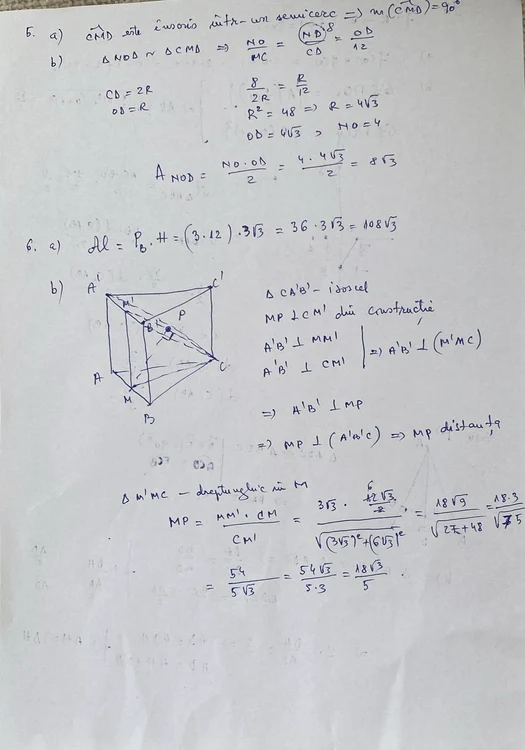 5. a) CMD este înscris într-un semicerc => m(CMD)=90°
b) Δ NOD ~ Δ CMD => NO/MC = ND/CD = OD/12
8
CD = 2R
OD = R
8/2R = R/12
R² = 48 => R = 4√3
OD = 4√3, NO = 4
A NOD = NO·OD/2 = 4·4√3/2 = 8√3
6. a) Al = P_B · H = (3·12)·3√3 = 36·3√3 = 108√3
b)
A' M' B' C' P
A M B C
Δ CA'B' – isoscel
MP ⊥ CM' din construcție
A'B' ⊥ MM'
A'B' ⊥ CM' | => A'B' ⊥ (M'MC)
=> A'B' ⊥ MP
=> MP ⊥ (A'B'C) => MP distanța
Δ M'MC – dreptunghic în M
MP = MM'·CM/CM' = 3√3 · 12√3/2 / √((3√3)²+(6√3)²) = 18√9/√(27+48) = 18·3/√75
6
= 54/5√3 = 54√3/5·3 = 18√3/5.